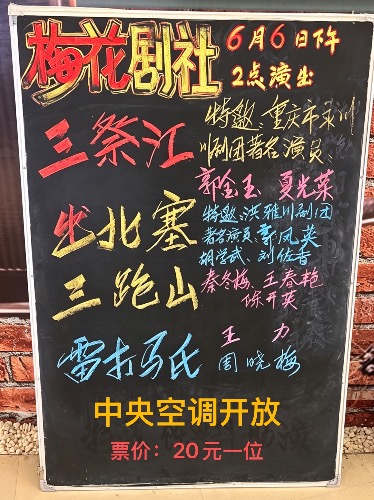 梅花剧社
6月6日下午
2点演出
三祭江
特邀重庆市永川
川剧团著名演员、
郭金玉 夏光菜
出北塞
特邀洪雅川剧团
著名演员郭凤英
胡学武、刘佐香
三跑山
秦冬梅、王春艳
陈开英
雷打马氏
王力
周晓梅
中央空调开放
票价：20元一位